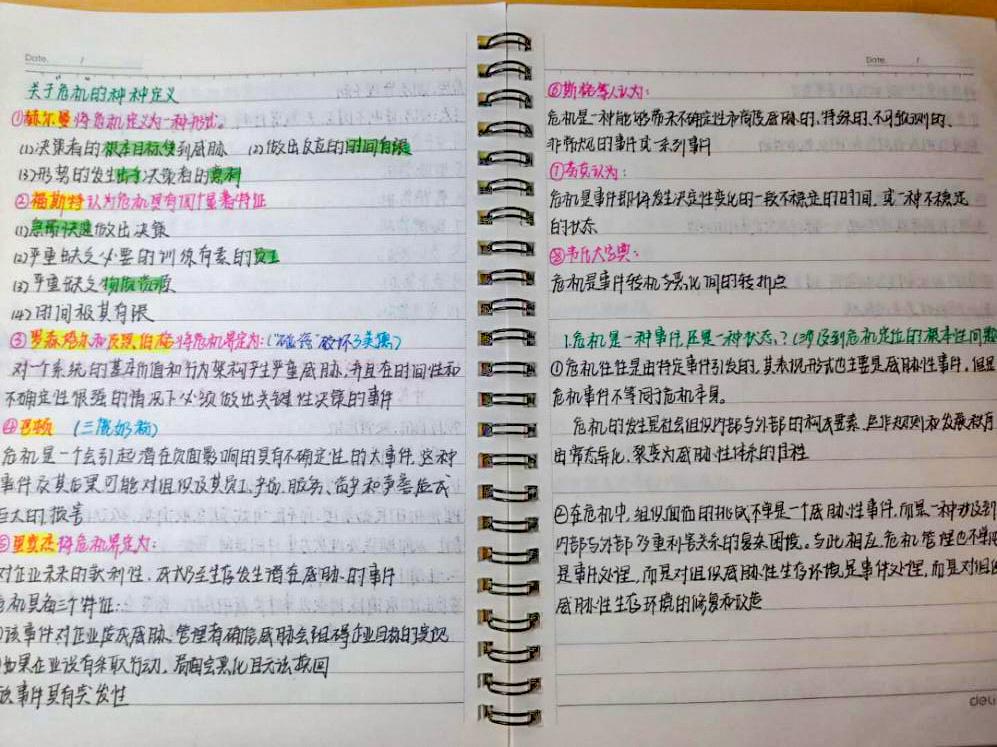 Date. /
关于"危机"的种种定义
①赫尔曼将危机定义为一种形式。
(1)决策者的根本目标受到威胁 (2)做出反应的时间有限
(3)形势的发生出乎决策者的意料
②福斯特认为危机具有四个显著特征
(1)急需快速做出决策
(2)严重缺乏必要的训练有素的员工
(3)严重缺乏物质资源
(4)时间极其有限
③罗森塔尔和皮恩伯格将危机界定为:("破坏3
对一个系统的基本价值和行为架构产生严重威胁,并且在时间性和
不确定性很强的情况下必须做出关键性决策的事件
④巴顿
危机是一个会引起潜在负面影响的具有不确定性的大事件,这种
事件及其后果可能对组织及其员工、产品、服务、资产和声誉造成
巨大的损害
⑤里宾杰将危机界定为:
对企业未来的获利性、成长乃至生存发生潜在威胁的事件
危机具备三个特征:
该事件对企业造成威胁、管理者确信威胁会阻碍企业目标的实现
如果企业没有采取行动,局面会恶化且无法挽回
该事件具有突发性
Date. /
⑥斯格等人认为:
危机是一种能够带来不确定性和高度威胁的、特殊的、不可预测的、
非常规的事件或一系列事件
⑦
认为:
危机是事件即将发生决定性变化的一段不稳定的时间,或一种不稳定
的状态
⑧韦氏大字典:
危机是事件转机与恶化间的转折点
1.危机是一种事件,还是一种状态?(涉及到危机定位的根本性问题
①危机往往是由特定事件引发的,其表现形式也主要是威胁性事件,但是
危机事件不等同于危机本身。
危机的发生是社会组织内部与外部的构成要素、运作规则和发展秩序
由常态异化、裂变为威胁性体系的过程
②在危机中,组织面临的挑战不单是一个威胁性事件,而是一种涉及到
内部与外部多重利害关系的复杂困境。与此相应,危机管理也不单
是事件处理,而是对组织威胁性生存环境是事件处理,而是对组织
威胁性生存环境的修复和改造
deli